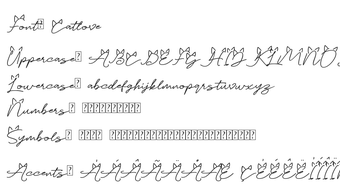 Font Catlove
Uppercase ABCDEFG HIJ KLMNO
Lowercase abcdefghijklmnopqrstuvwxyz
Numbers
Symbols
Accents